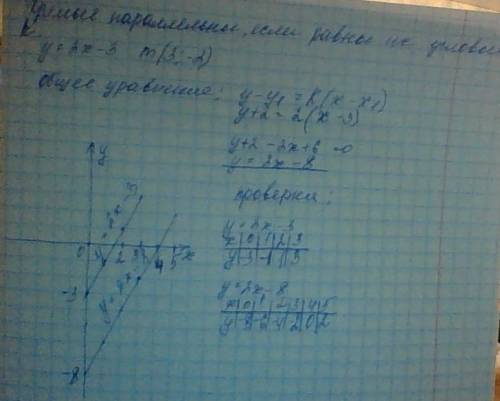 Прямые параллельны, если равны их угловые
к
y = 2x - 3   m(3; -2)
общее уравнение: y - y₁ = k(x - x₁)
y + 2 = 2(x - 3)
y + 2 - 2x + 6 = 0
y = 2x - 8
проверка:
y = 2x - 3
x | 0 | 1 | 2 | 3
y | -3 | -1 | 1 | 3
y = 2x - 8
x | 0 | 1 | 2 | 3 | 4 | 5
y | -8 | -6 | -4 | -2 | 0 | 2
y
0 1 2 3 4 5 x
-3
-8